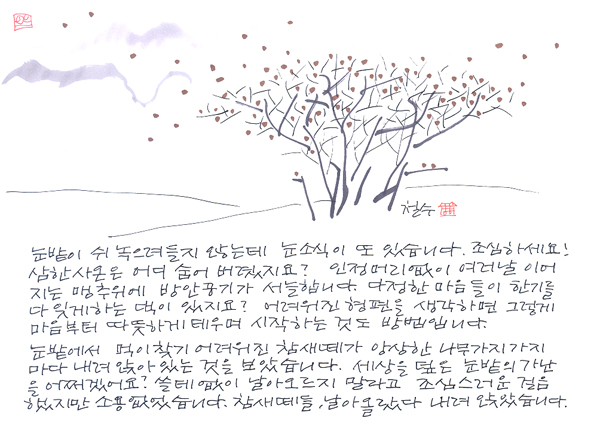 철수
눈밭이 쉬 녹으려들지 않는데 눈소식이 또 있습니다. 조심하세요!
삼한사온은 어디 숨어 버렸지요? 인정머리없이 여러날 이어
지는 맹추위에 방안공기가 서늘합니다. 다정한 마음들이 한기를
다 잊게하는 덕이 있지요? 어려워진 형편을 생각하면 그렇게
마음부터 따뜻하게 데우며 시작하는 것도 방법입니다.
눈밭에서 먹이찾기 어려워진 참새떼가 앙상한 나무가지가지
마다 내려 앉아 있는 것을 보았습니다. 세상을 덮은 눈밭의 가난
을 어쩌겠어요? 쓸데없이 날아오르지 말라고 조심스러운 걸음
했지만 소용없었습니다. 참새떼들, 날아올랐다 내려 앉았습니다.